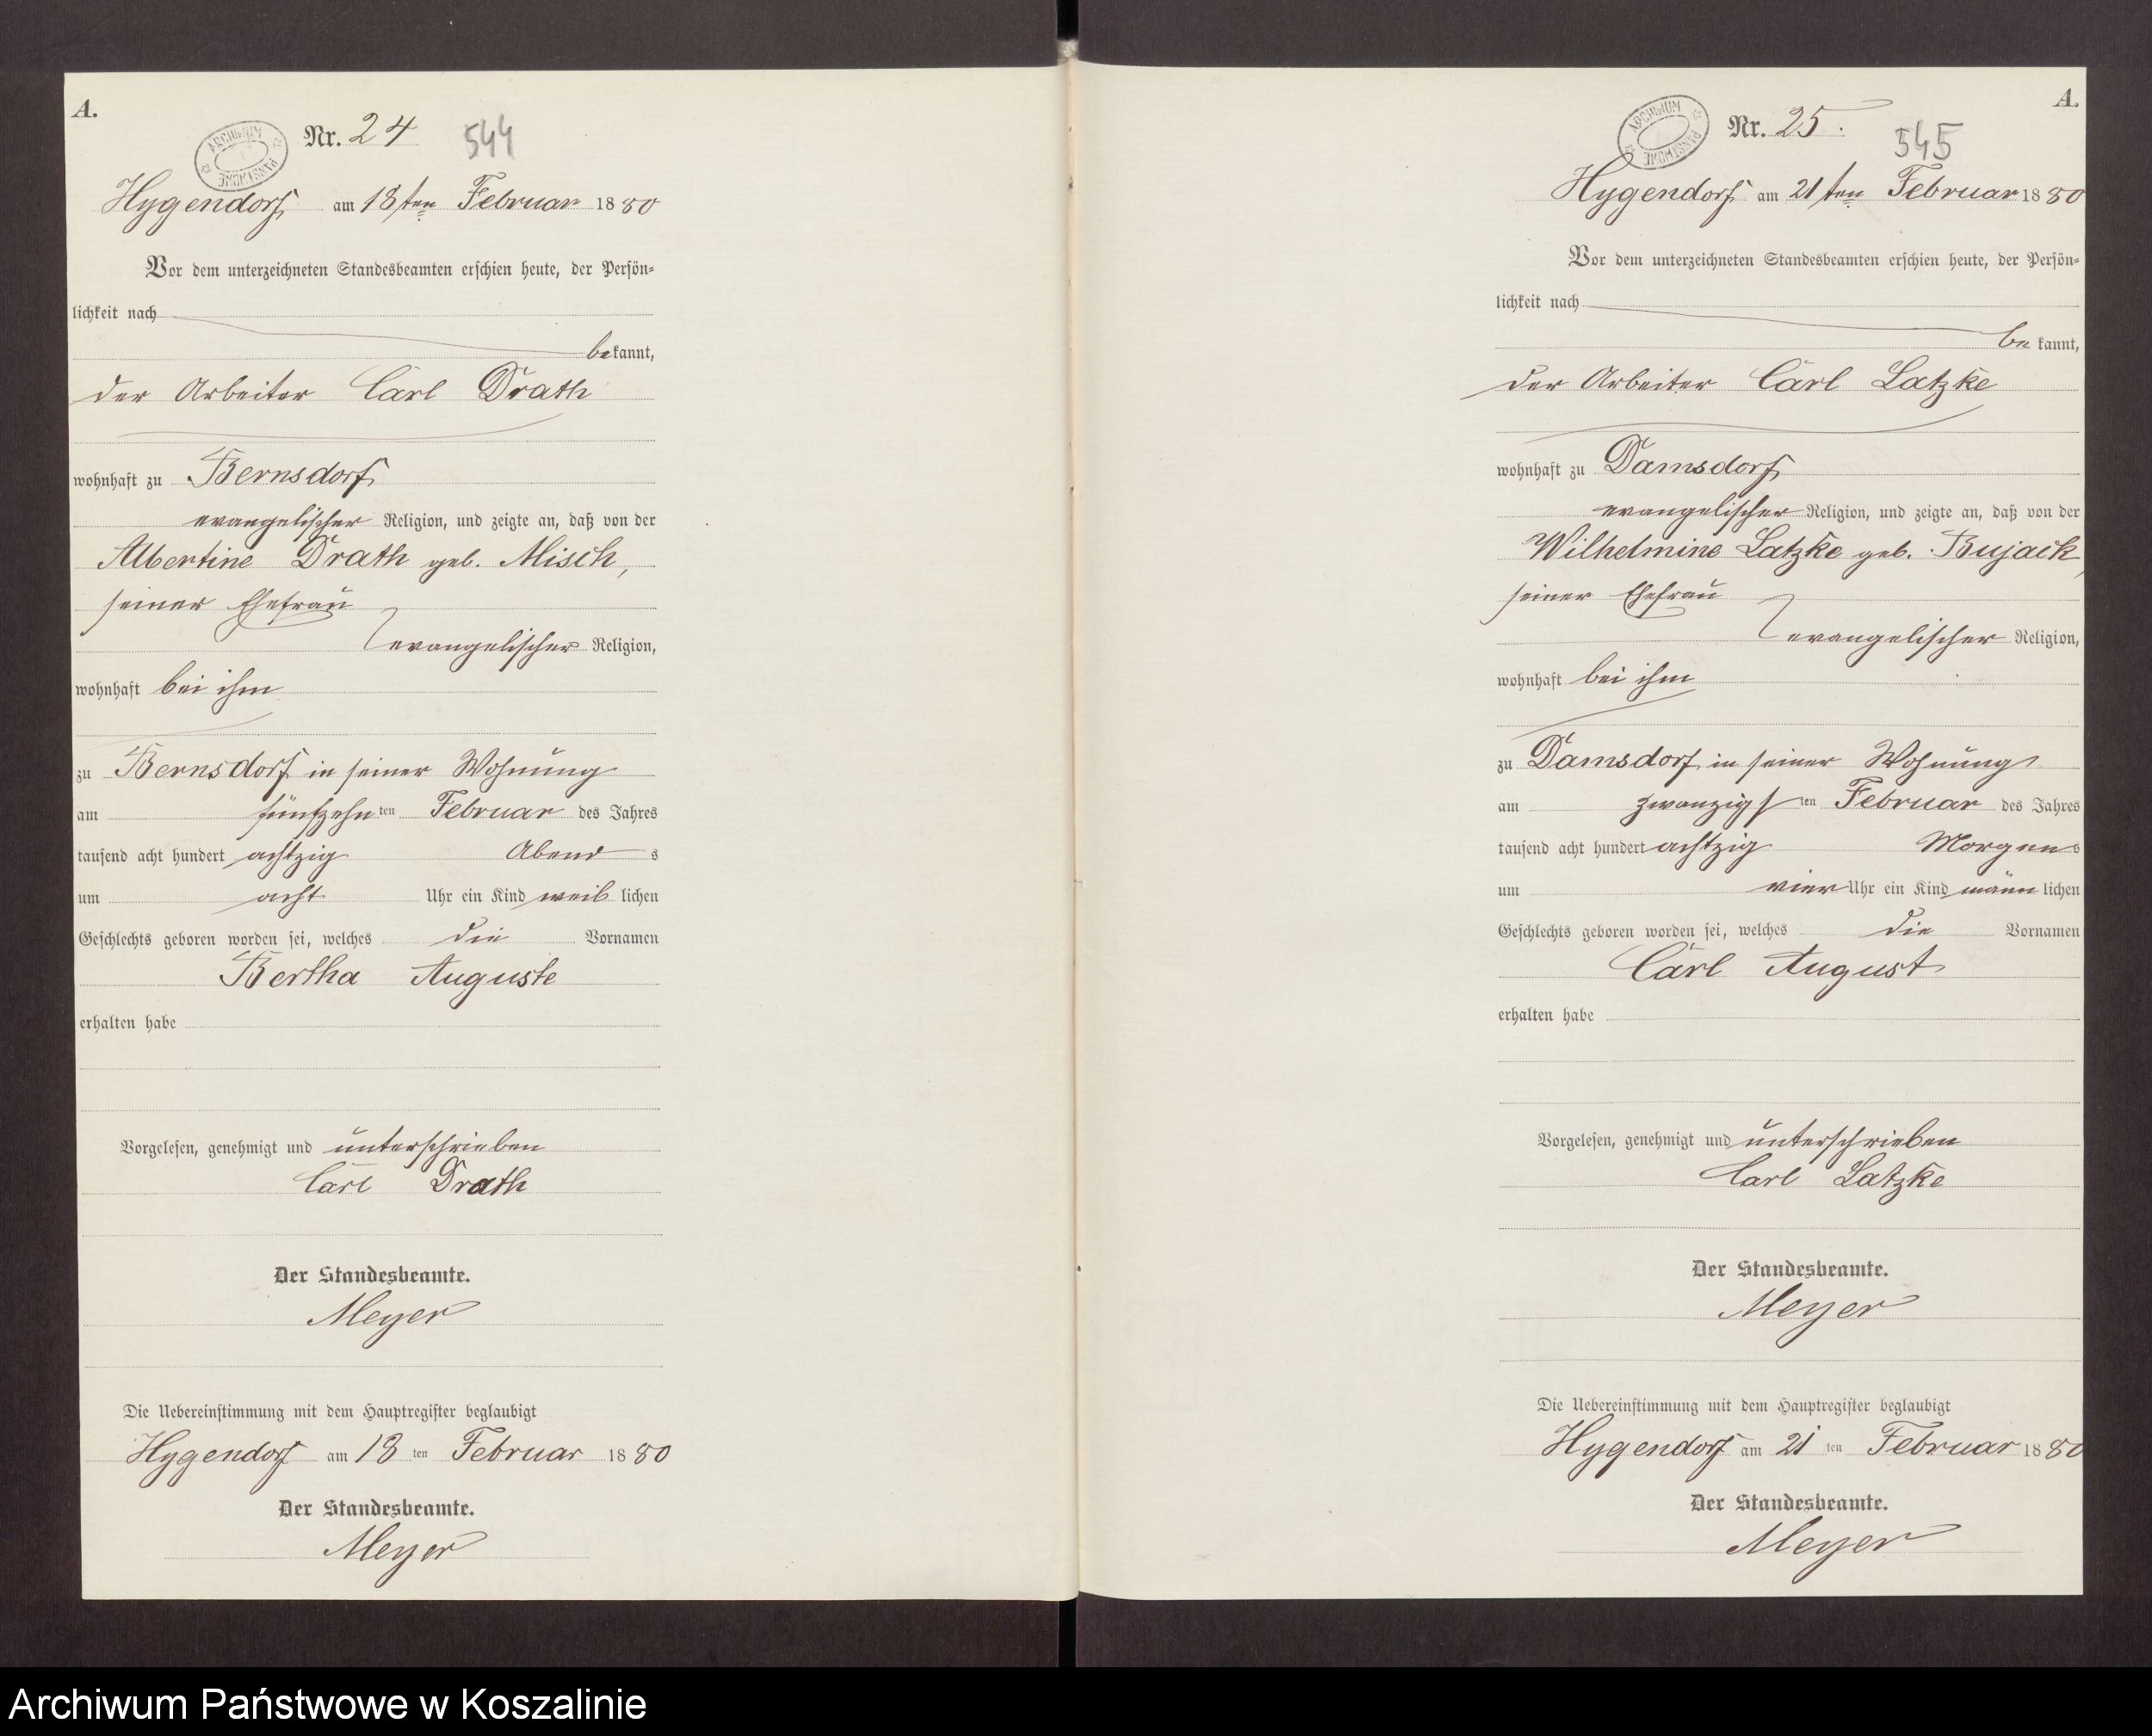 A.
ARCHIWUM PAŃSTWOWE
Nr. 24 544
Hygendorf am 18ten Februar 1880
Vor dem unterzeichneten Standesbeamten erschien heute, der Persön-
lichkeit nach
bekannt,
der Arbeiter Carl Drath
wohnhaft zu Bernsdorf
evangelischer Religion, und zeigte an, daß von der
Albertine Drath geb. Misch,
seiner Ehefrau
evangelischer Religion,
wohnhaft bei ihm
zu Bernsdorf in seiner Wohnung
am fünfzehnten Februar des Jahres
tausend acht hundert achtzig Abends
um acht Uhr ein Kind weiblichen
Geschlechts geboren worden sei, welches die Vornamen
Bertha Auguste
erhalten habe
Vorgelesen, genehmigt und unterschrieben
Carl Drath
Der Standesbeamte.
Meyer
Die Uebereinstimmung mit dem Hauptregister beglaubigt
Hygendorf am 18ten Februar 1880
Der Standesbeamte.
Meyer
A.
ARCHIWUM PAŃSTWOWE
Nr. 25. 545
Hygendorf am 21ten Februar 1880
Vor dem unterzeichneten Standesbeamten erschien heute, der Persön-
lichkeit nach
bekannt,
der Arbeiter Carl Latzke
wohnhaft zu Damsdorf
evangelischer Religion, und zeigte an, daß von der
Wilhelmine Latzke geb. Bujack,
seiner Ehefrau
evangelischer Religion,
wohnhaft bei ihm
zu Damsdorf in seiner Wohnung
am zwanzigsten Februar des Jahres
tausend acht hundert achtzig Morgens
um vier Uhr ein Kind männlichen
Geschlechts geboren worden sei, welches die Vornamen
Carl August
erhalten habe
Vorgelesen, genehmigt und unterschrieben
Carl Latzke
Der Standesbeamte.
Meyer
Die Uebereinstimmung mit dem Hauptregister beglaubigt
Hygendorf am 21ten Februar 1880
Der Standesbeamte.
Meyer
Archiwum Państwowe w Koszalinie